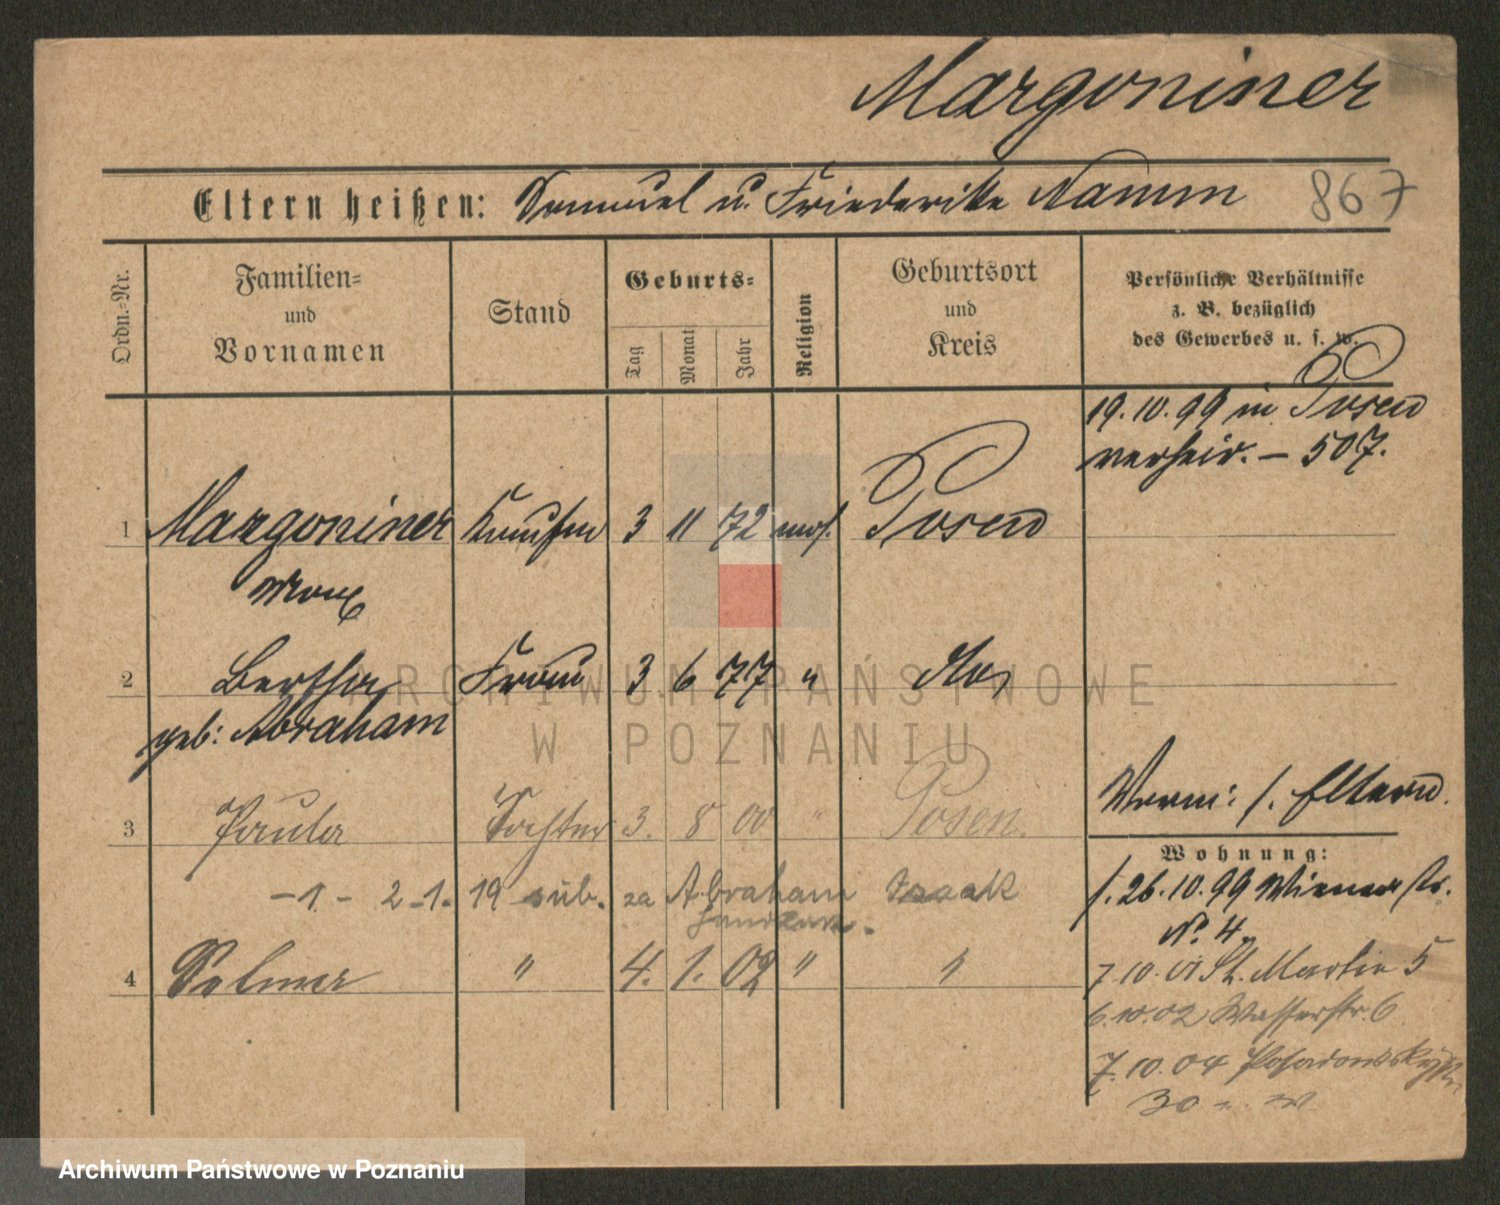 Margoniner
Eltern heißen: Samuel u. Friederike Namm 867
Ordn.-Nr.
Familien-
und
Vornamen
Stand
Geburts-
Tag
Monat
Jahr
Religion
Geburtsort
und
Kreis
Persönliche Verhältnisse
z. B. bezüglich
des Gewerbes u. s. w.
19. 10. 99 in Posen
verheir. – 507.
1 Margoniner Kaufm 3 11 72 mos. Posen
Max
2 Bertha Frau 3 6 77 " do
geb: Abraham
Verm: s. Eltern.
3 Paula Tochter 3. 8 00 " Posen.
Wohnung:
– 1. – 2 – 1. 19 sub. za Abraham Isaak
26. 10. 99 Wienerstr.
No. 4.
4 Selma " 4. 1. 02 " "
7. 10. 01 St. Martin 5
6. 10. 02 Wasserstr. 6
7. 10. 04 Posadowskystr.
30
ARCHIWUM PAŃSTWOWE
W POZNANIU
Archiwum Państwowe w Poznaniu